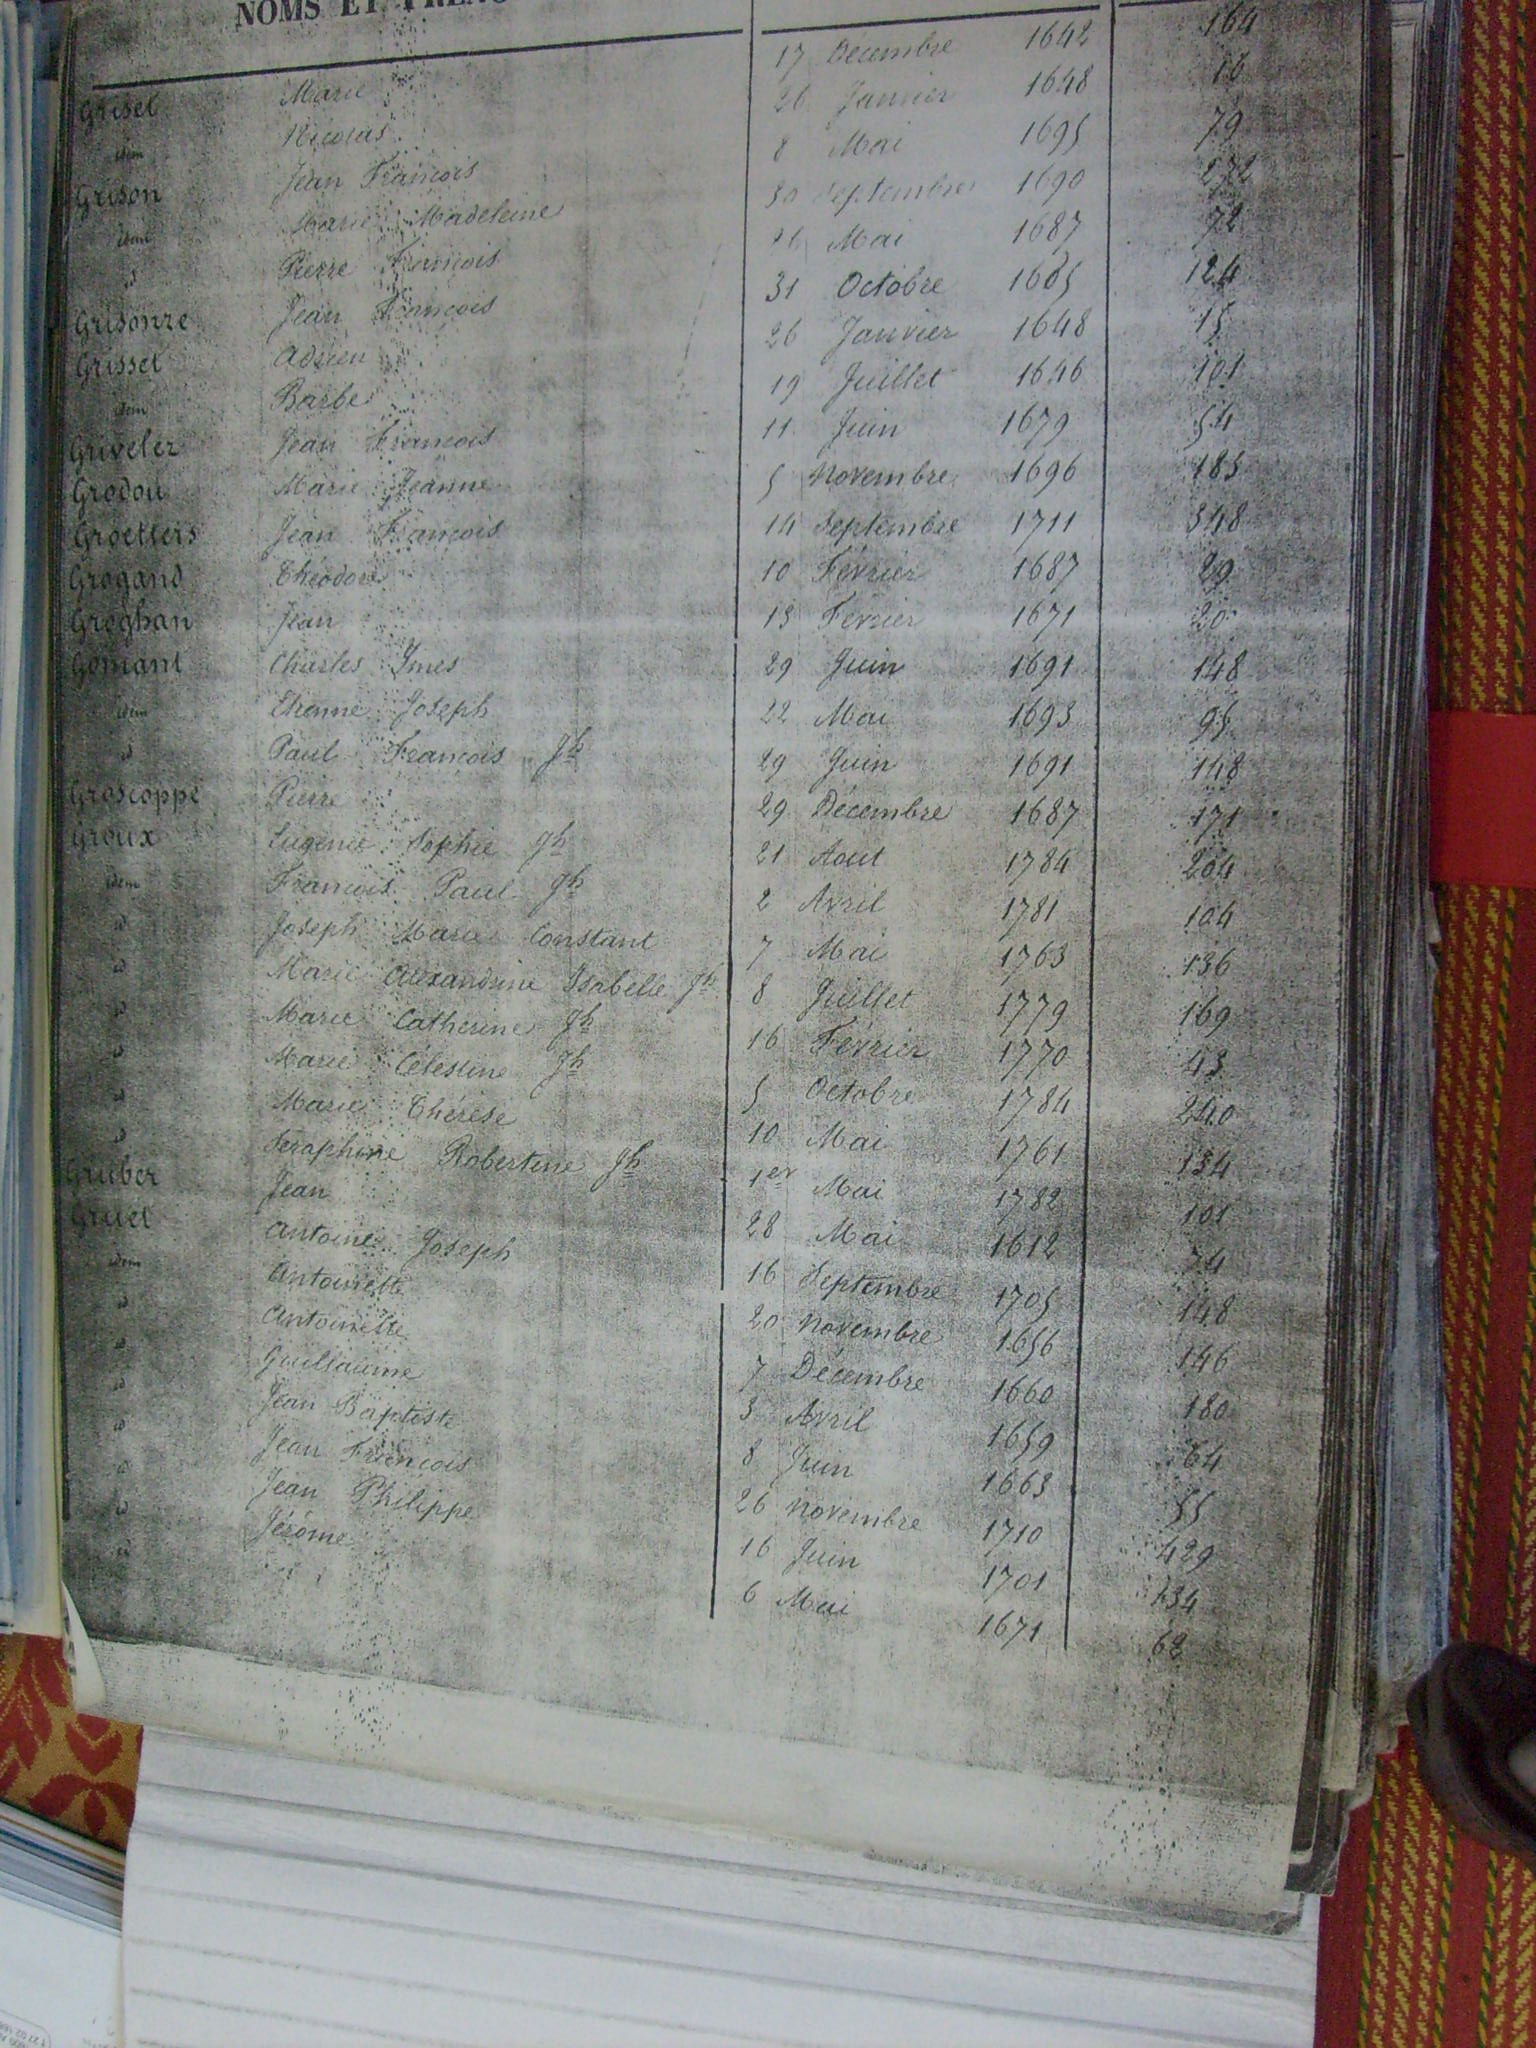 NOMS ET PRÉNO
Grisel Marie 17 Décembre 1642 164
idem Nicolas 26 Janvier 1648 16
Grison Jean François 8 Mai 1695 79
idem Marie Madeleine 30 Septembre 1690 272
id Pierre François 26 Mai 1687 72
Grisonre Jean François 31 Octobre 1685 124
Grissel Adrien 26 Janvier 1648 15
idem Barbe 19 Juillet 1646 101
Griveler Jean François 11 Juin 1679 54
Grodou Marie Jeanne 5 Novembre 1696 185
Groetters Jean François 14 Septembre 1711 348
Grogand Théodore 10 Février 1687 29
Groghan Jean 13 Février 1671 20
Gomant Charles Ymes 29 Juin 1691 148
idem Etienne Joseph 22 Mai 1693 95
id Paul François Jh 29 Juin 1691 148
Groscoppe Pierre 29 Décembre 1687 171
Groux Eugenie Sophie Jh 21 Aout 1784 204
idem François Paul Jh 2 Avril 1781 104
id Joseph Marie Constant 7 Mai 1763 136
id Marie Alexandrine Isabelle Jh 8 Juillet 1779 169
id Marie Catherine Jh 16 Février 1770 43
id Marie Célestine Jh 5 Octobre 1784 240
id Marie Thérèse 10 Mai 1761 134
id Séraphine Robertine Jh 1er Mai 1782 101
Gruber Jean 28 Mai 1612 74
Gruel Antoine Joseph 16 Septembre 1705 148
idem Antoinette 20 Novembre 1656 146
id Antoinette 7 Décembre 1660 180
id Guillaume 3 Avril 1659 64
id Jean Baptiste 8 Juin 1663 55
id Jean François 26 Novembre 1710 429
id Jean Philippe 16 Juin 1701 134
id Jérôme 6 Mai 1671 62